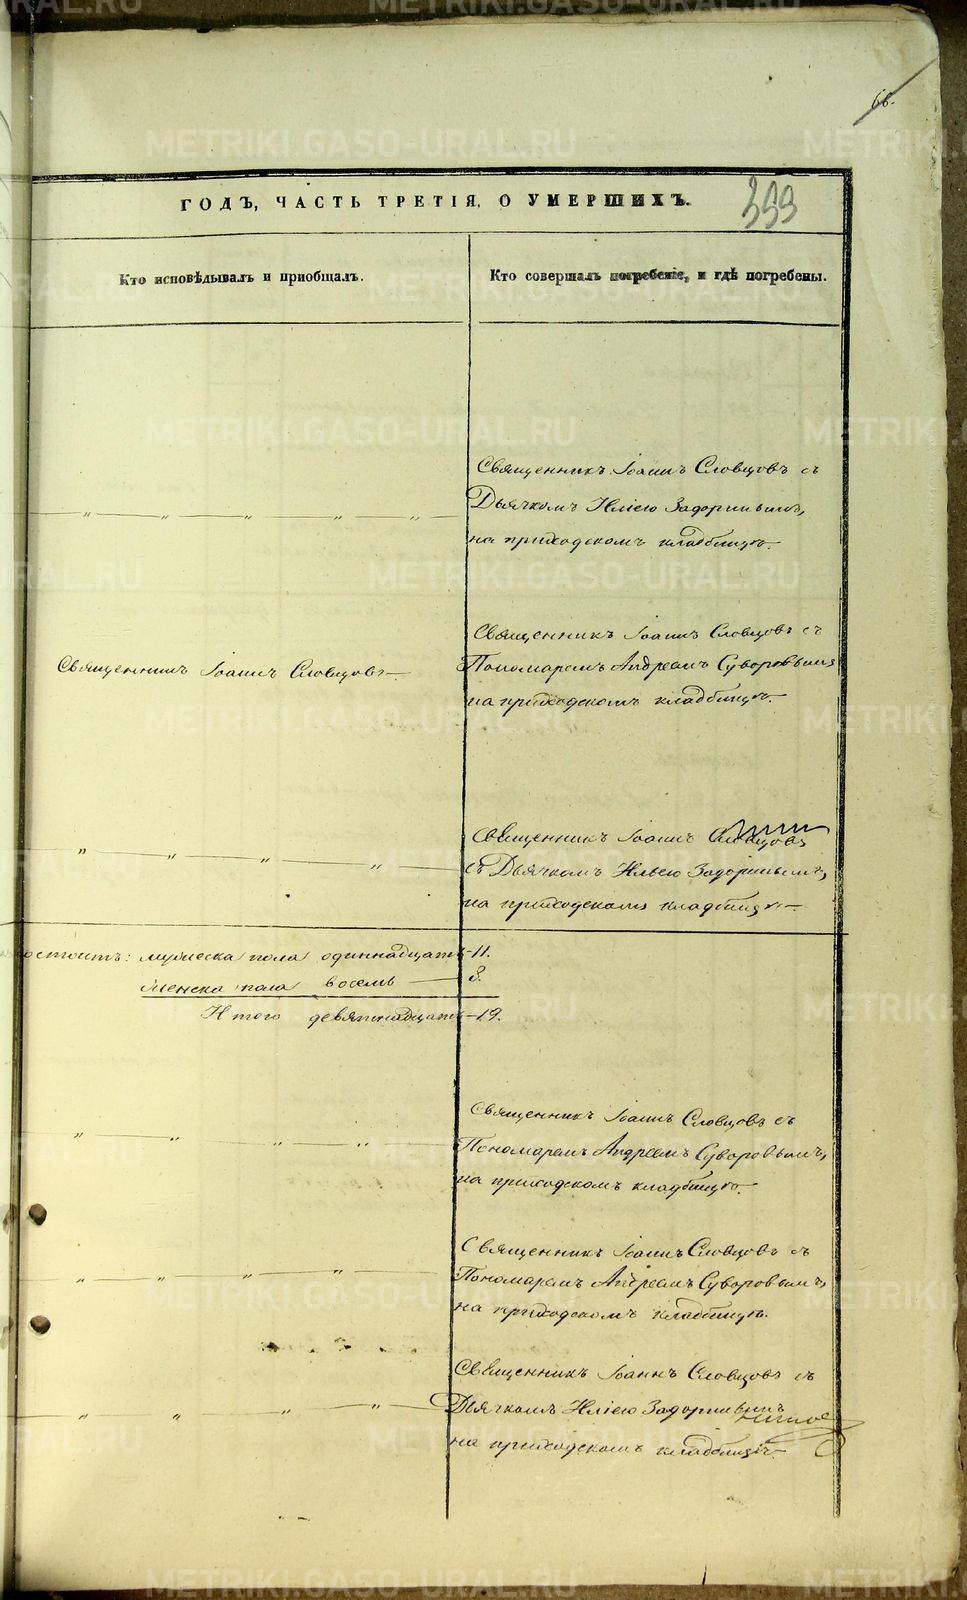 66.
ГОДЪ, ЧАСТЬ ТРЕТІЯ, О УМЕРШИХЪ.
399
Кто исповѣдывалъ и приобщалъ.
Кто совершалъ погребеніе, и гдѣ погребены.
Священникъ Іоаннъ Словцовъ съ
Дьячкомъ Иліею Задоринымъ,
на приходскомъ кладбищѣ.
Священникъ Іоаннъ Словцовъ
Священникъ Іоаннъ Словцовъ съ
Пономаремъ Андреемъ Суворовымъ
на приходскомъ кладбищѣ.
Священникъ Іоаннъ Словцовъ
съ Дьячкомъ Ильею Задоринымъ,
на приходскомъ кладбищѣ
остоитъ: мужеска пола одиннадцать - 11.
женска пола восемь - 8.
Итого девятнадцать - 19.
Священникъ Іоаннъ Словцовъ съ
Пономаремъ Андреемъ Суворовымъ,
на приходскомъ кладбищѣ.
Священникъ Іоаннъ Словцовъ съ
Пономаремъ Андреемъ Суворовымъ,
на приходскомъ кладбищѣ.
Священникъ Іоаннъ Словцовъ съ
Дьячкомъ Иліею Задоринымъ
на приходскомъ кладбищѣ
METRIKI.GASO-URAL.RU